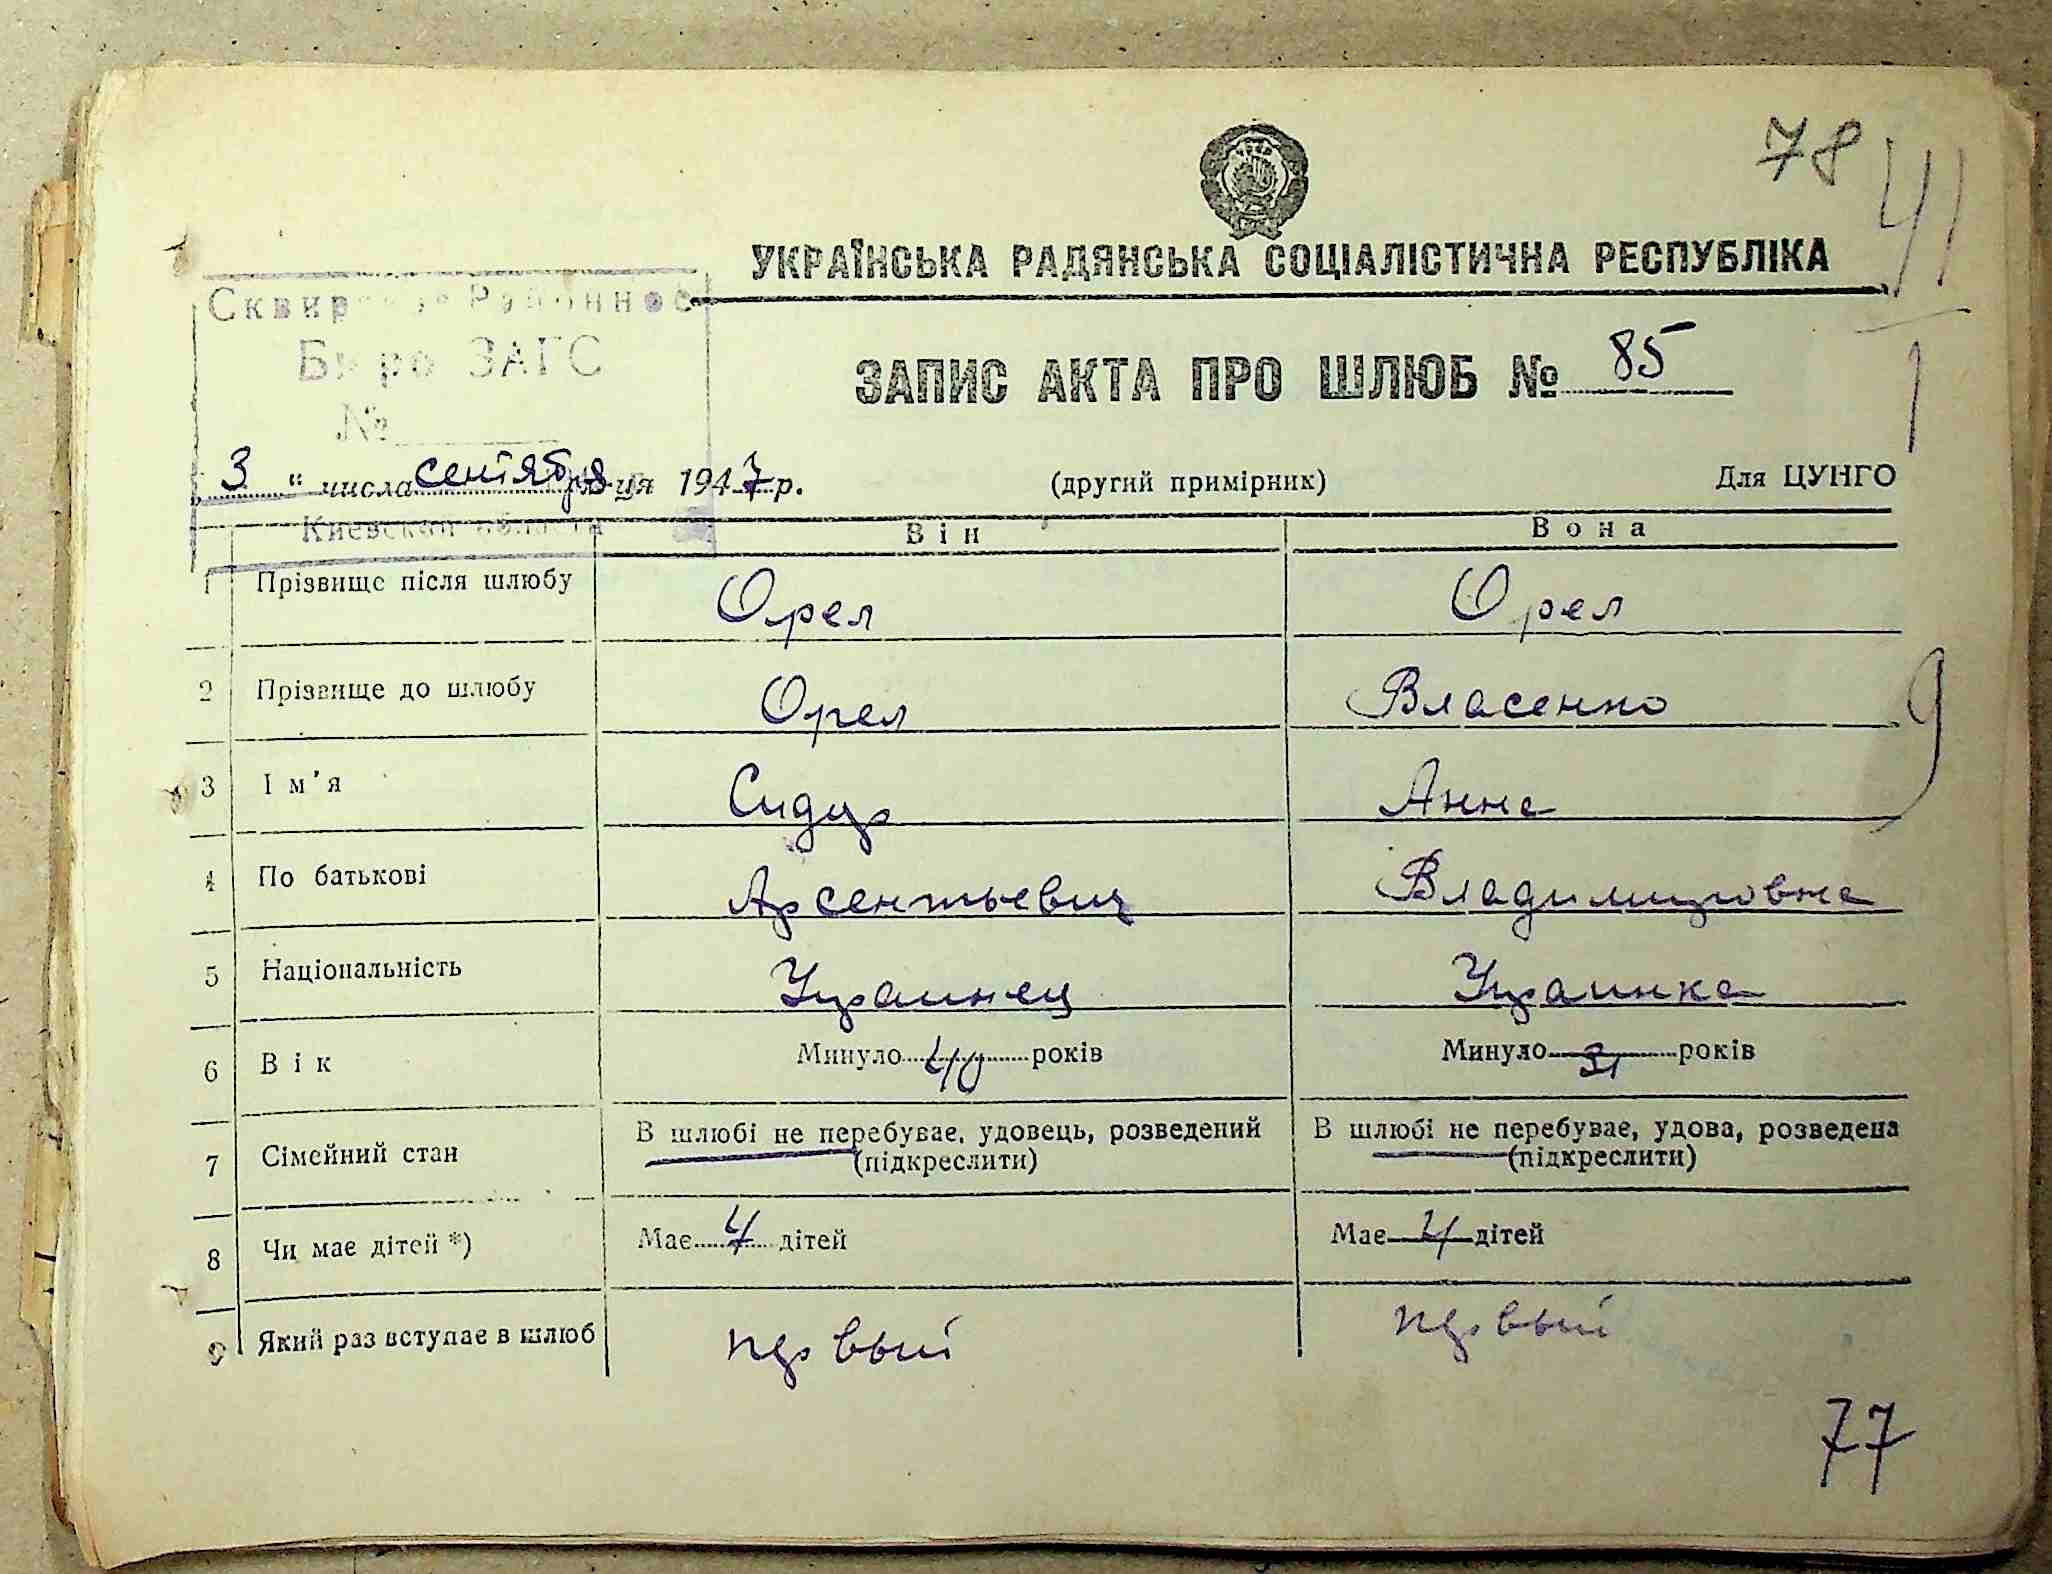 78
41
УКРАЇНСЬКА РАДЯНСЬКА СОЦІАЛІСТИЧНА РЕСПУБЛІКА
Сквирское Районное
Бюро ЗАГС
№
Киевской области
1
ЗАПИС АКТА ПРО ШЛЮБ № 85
3 " числа сентября м-ця 1947 р. (другий примірник) Для ЦУНГО
Він Вона
1 Прізвище після шлюбу Орел Орел
2 Прізвище до шлюбу Орел Власенко
9
3 Ім'я Сидор Анна
4 По батькові Арсентьевич Владимировна
5 Національність Украинец Украинка
6 Вік Минуло 40 років Минуло 31 років
7 Сімейний стан В шлюбі не перебуває, удовець, розведений В шлюбі не перебуває, удова, розведена
(підкреслити) (підкреслити)
8 Чи має дітей *) Має 4 дітей Має 4 дітей
9 Який раз вступає в шлюб первый первый
77